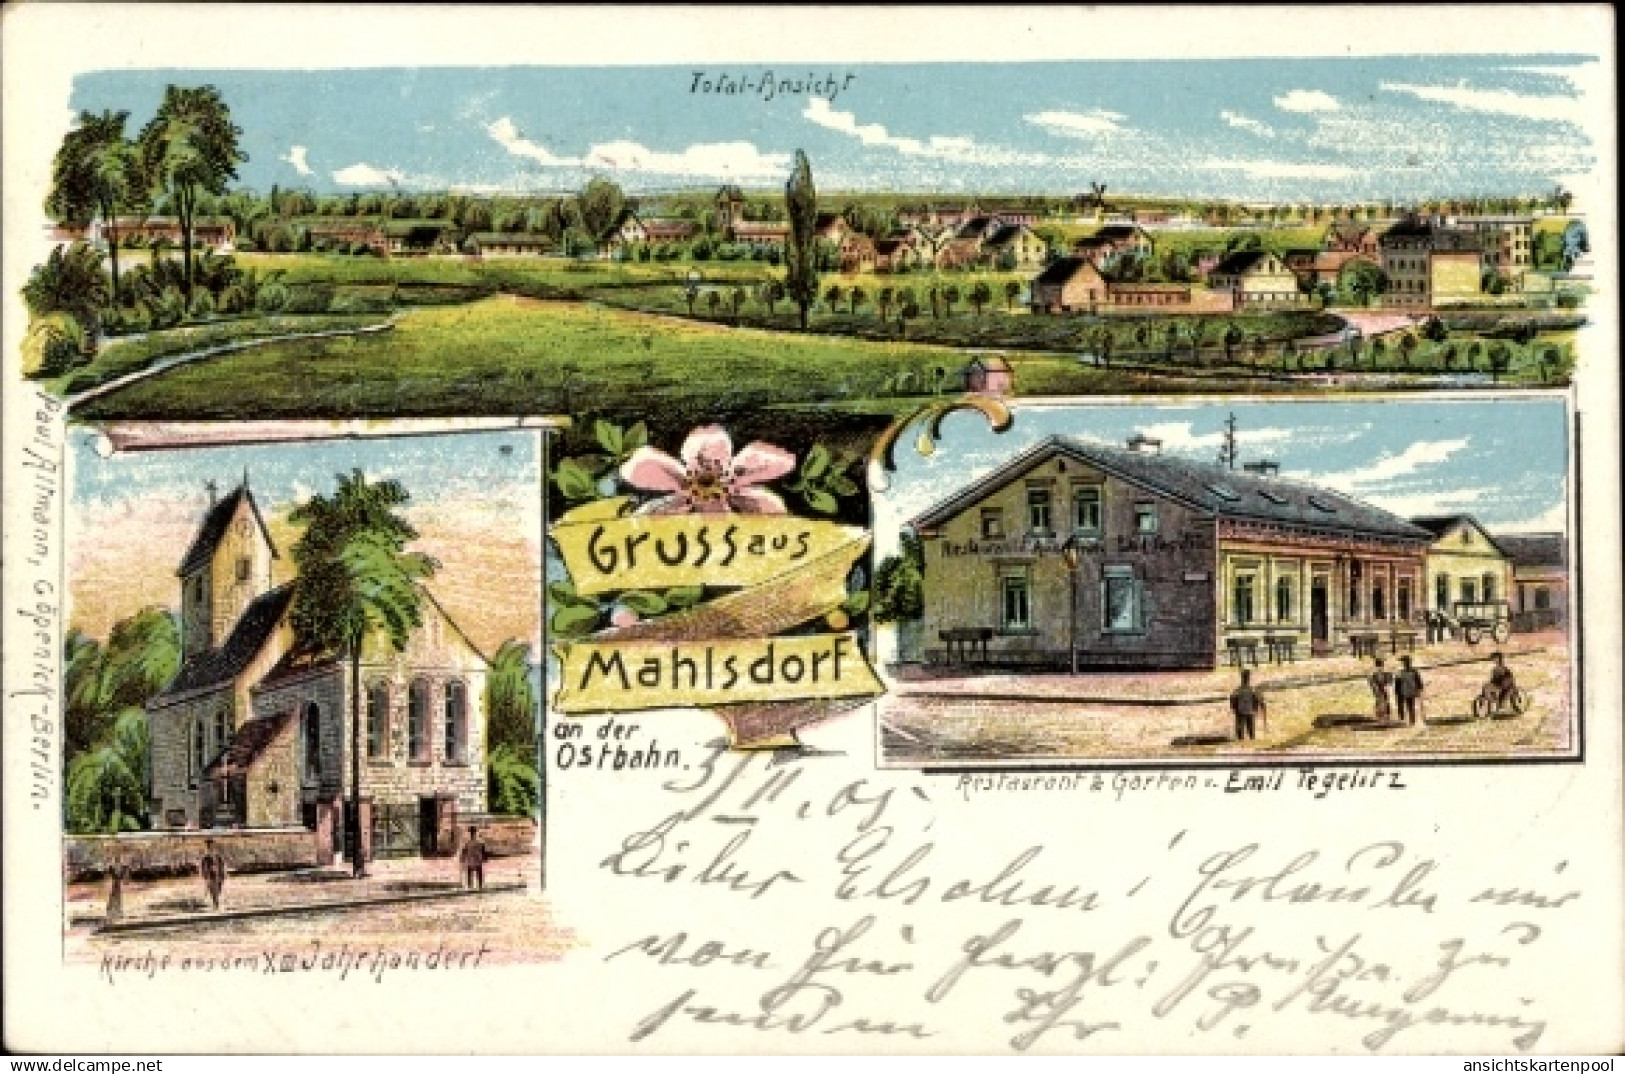 Total-Ansicht
Gruss aus
Mahlsdorf
an der
Ostbahn.
Paul Altmann, Cöpenick-Berlin.
Kirche aus dem XIII Jahrhundert
Restaurant & Garten v. Emil Tegelitz
3/II. 05.
Lieber Elsohen! Erlaube mir
von hier herzl: Grüße zu
senden Ihr P.
ansichtskartenpool